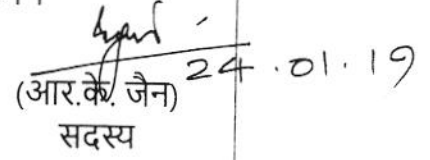 24.01.19
(आर.के. जैन)
सदस्य